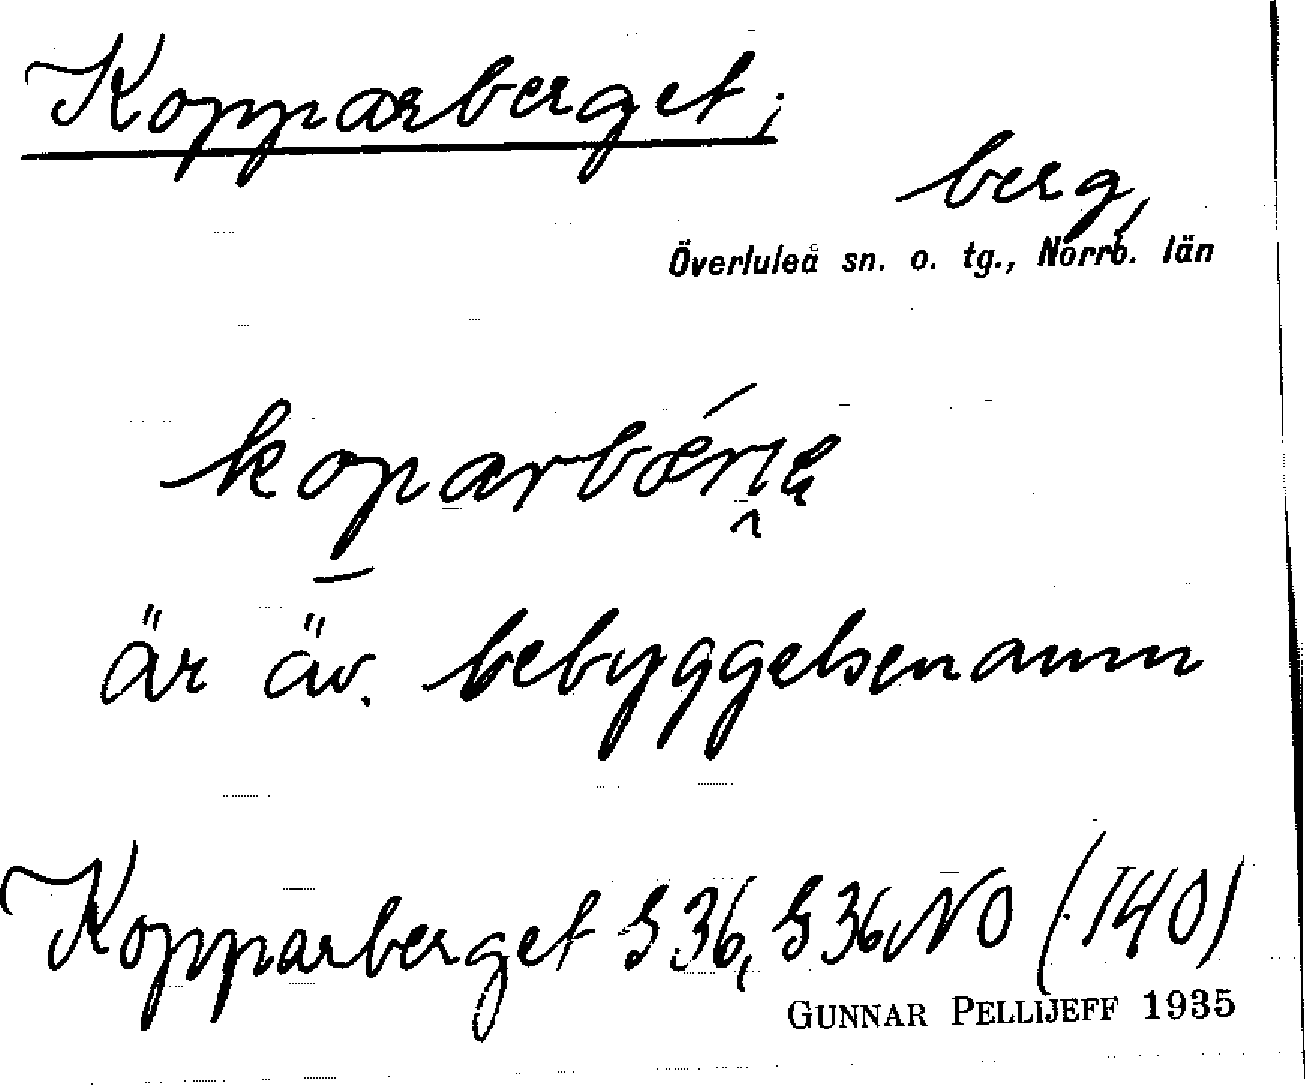 Kopparberget;
berg,
Överluleå sn. o. tg., Norrb. län
koparbǽrı̯e
är äv. bebyggelsenamn
Kopparberget G 36, G 36 NO (140)
GUNNAR PELLIJEFF 1935